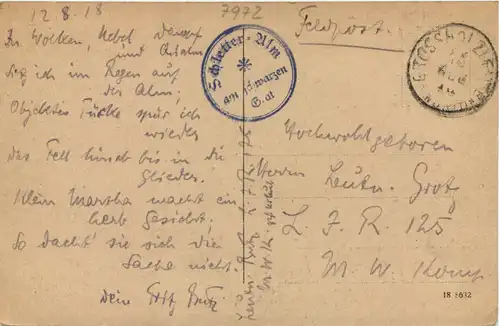 12.8.18
7972
Feldpost.
In Wolken, Nebel, Dampf
und Qualm
Sitz ich im Regen auf
der Alm,
Objektes Tücke spür ich
wieder
das Fell hinab bis in die
Glieder.
Klein Martha macht ein
herb Gesicht,
So dacht' sie sich die
Sache nicht.
Dein Fritz
Schletter-Alm
am schwarzen
Grat
Hochwohlgeboren
Herrn
Leutn. Grotz
L. J. R. 125
M. W. Komp
18 8632